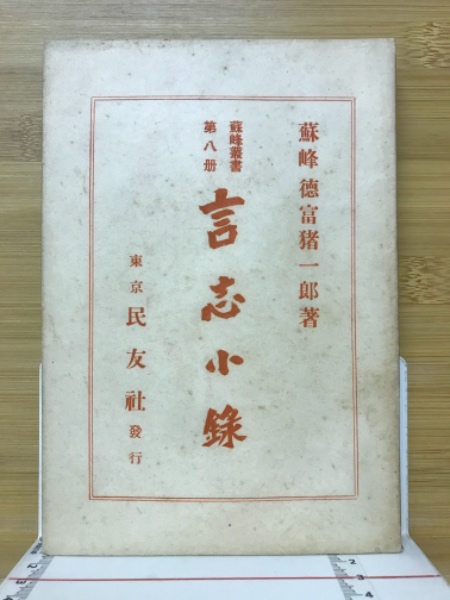 蘇峰德富猪一郎著
蘇峰叢書
第八册
言志小錄
東京民友社發行
2
3
4